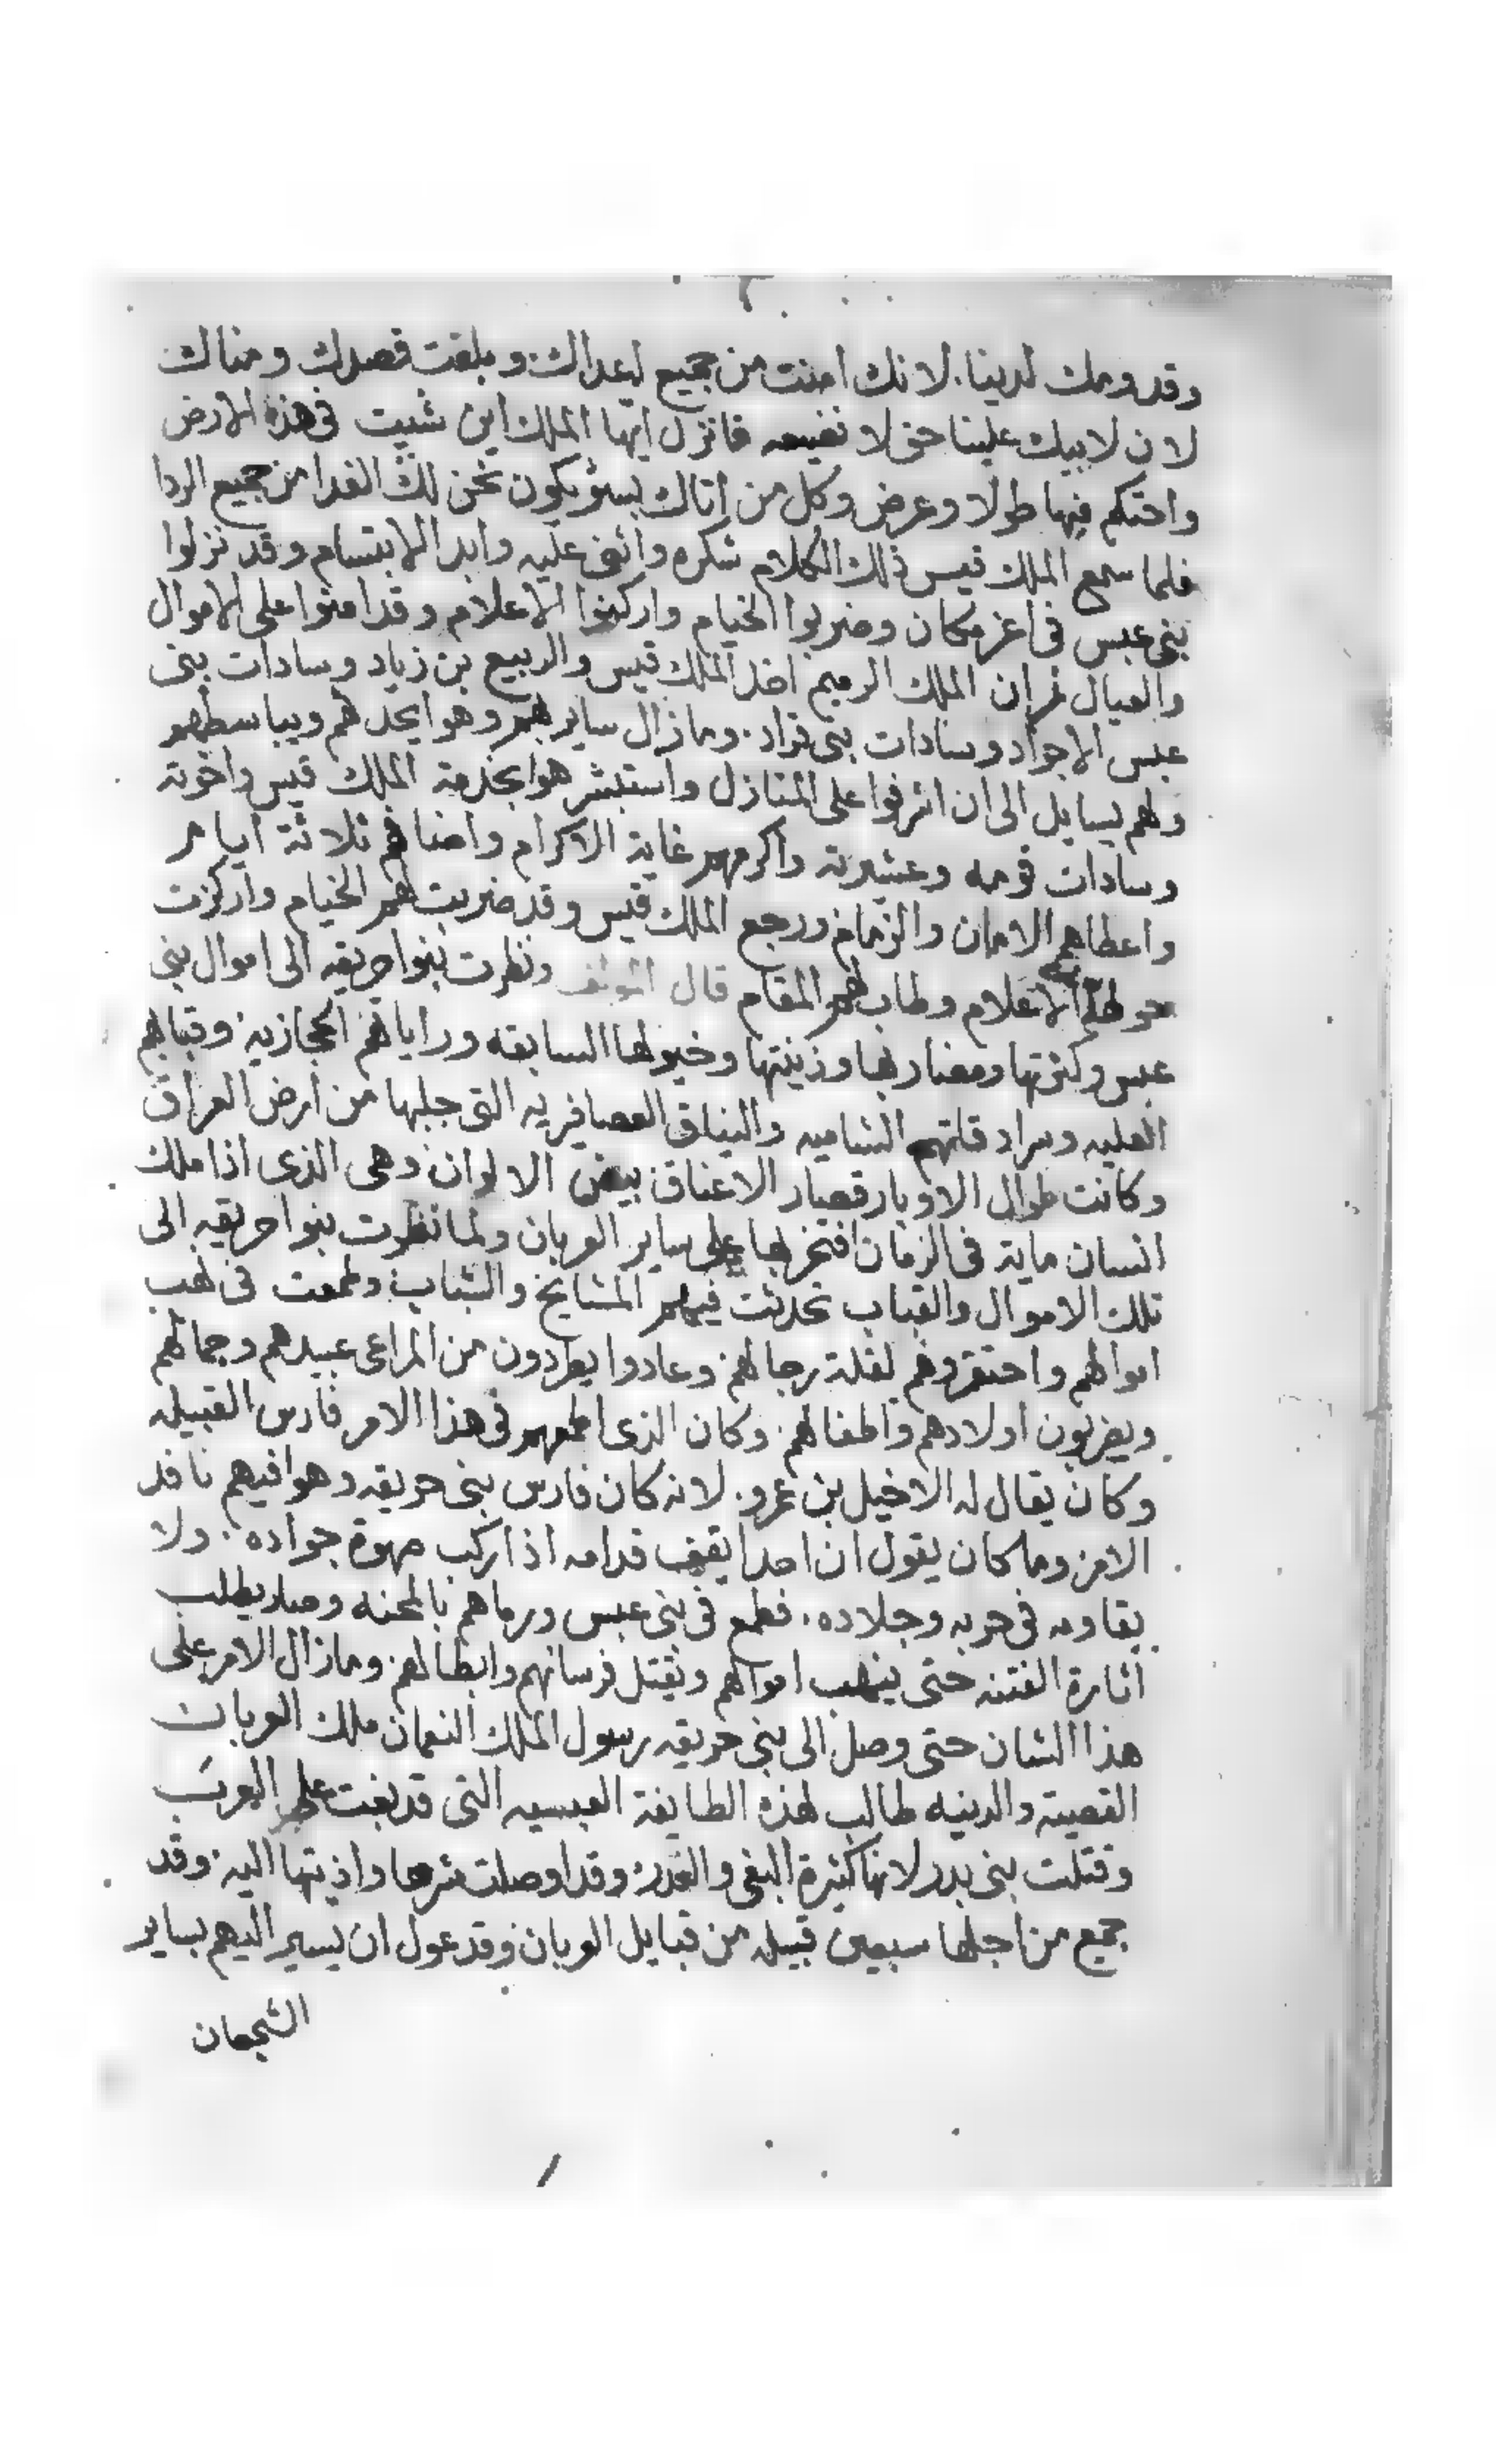 وقدومك لدينا. لانك امنت من جميع اعداك. وبلغت قصدك ومناك
لان لابيك علينا حق لا نضيعه فانزل ايها الملك اين شيت في هذه الارض
واحتكم فيها طولا وعرض وكل من اتاك بسؤ يكون نحن لك الفدا من جميع الردا
فلما سمع الملك قيس ذلك الكلام شكره واثنى عليه وابدا الابتسام وقد نزلوا
بني عبس في اعز مكان وضربوا الخيام واركزوا الاعلام وقد امنوا على الاموال
والعيال ثم ان الملك الرميم اخد الملك قيس والربيع بن زياد وسادات بني
عبس الاجواد وسادات بني قراد. وما زال سايربهم وهوا يحدهم ويباسطهم
ولهم يسايل الى ان اشرفوا على المنازل واستبشر هوا بخدمة الملك قيس واخوته
وسادات قومه وعشيرته واكرمهم غاية الاكرام واضافهم ثلاثة ايام
واعطاهم الامان والزمام ورجع الملك قيس وقد ضربت لهم الخيام واركزت
حولهم الاعلام وطاب لهم المقام قال المولف ونظرت بنوا حريقه الى اموال بني
عبس وكثرتها ومضاربها وزينتها وخيولها السابقه وراياتهم الحجازيه وقبابهم
العليه وسرادقاتهم الشاميه والنياق العصافريه التي جلبها من ارض العراق
وكانت طوال الاوبار قصار الاعناق بيض الالوان وهي الذي اذا ملك
انسان ماية في الزمان افتخر بها على ساير العربان ولما نظرت بنوا حريقه الى
تلك الاموال والقباب تحدثت فيهم المشايخ والشباب وطمعت في نهب
اموالهم واحتقروهم لقلة رجالهم وعادوا يطردون من المراعى عبيدهم وجمالهم
ويضربون اولادهم واطفالهم. وكان الذي اطمعهم في هذا الامر فارس القبيله
وكان يقال له الاخيل بن عمرو. لانه كان فارس بني حريقه وهوا فيهم نافد
الامر وما كان يقول ان احدا يقف قدامه اذا ركب صهوة جواده. ولا
يقاومه في حربه وجلاده. فطمع في بني عبس ورماهم بالمحنه وصار يطلب
اثارة الفتنه حتى ينهب اموالهم ويقتل فرسانهم وابطالهم وما زال الامر على
هذا الشان حتى وصل الى بني حريقه رسول الملك النعمان ملك العربان
القصيه والدنيه طالب لهذه الطايفة العبسيه التي قد بغت على العرب
وقتلت بني بدر لانها كثيرة البغى والغدر وقد اوصلت شرها واذيتها اليه وقد
جمع من اجلها سبعين قبيله من قبايل العربان وقد عول ان يسير اليهم بساير
الشجعان